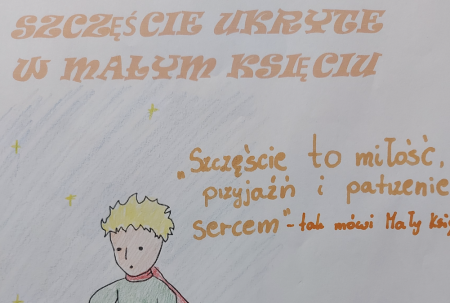 SZCZĘŚCIE UKRYTE
W MAŁYM KSIĘCIU
"Szczęście to miłość,
przyjaźń i patrzenie
sercem" - tak mówi Mały